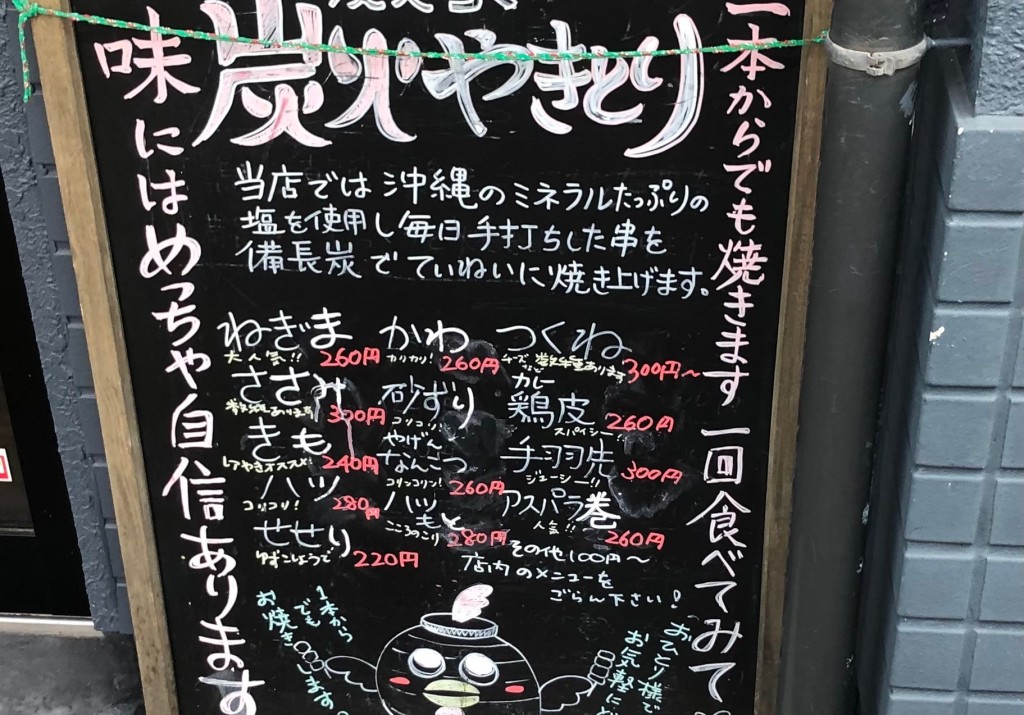 炭火やきとり
一本からでも焼きます 一回食べてみて
味にはめっちゃ自信あります
当店では沖縄のミネラルたっぷりの
塩を使用し毎日手打ちした串を
備長炭でていねいに焼き上げます。
ねぎま
大人気!! 260円
ささみ
300円
きも
レアやきオススメ! 240円
ハツ
コリコリ! 280円
せせり
ゆずこしょうで 220円
かわ
カリカリ! 260円
砂ずり
コリコリ!
やげん
なんこつ
コリッコリン! 260円
ハツ
もと
こころのこり 280円
つくね
300円〜
カレー
鶏皮
スパイシー! 260円
手羽先
ジューシー!! 300円
アスパラ巻
人気!! 260円
その他100円〜
店内のメニューを
ごらん下さい!
1本から
でも
お焼きします
おひとり様で
お気軽に